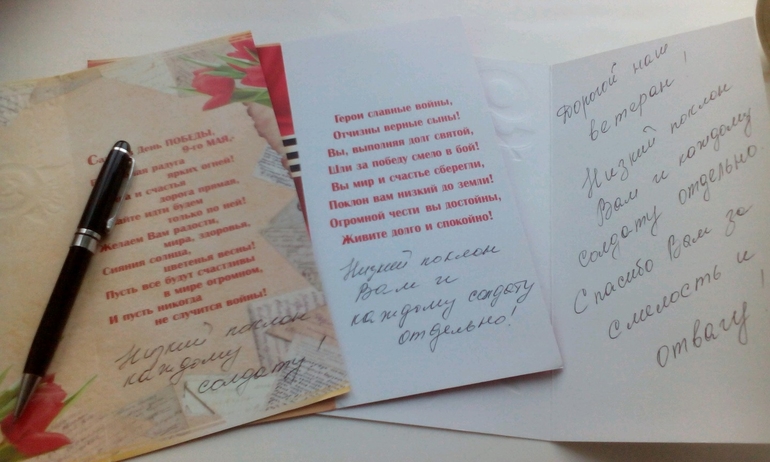 День ПОБЕДЫ,
9-го МАЯ,-
радуга
ярких огней!
и счастья
дорога прямая,
идти будем
только по ней!
Желаем Вам радости,
мира, здоровья,
Сияния солнца,
цветенья весны!
Пусть все будут счастливы
в мире огромном,
И пусть никогда
не случится войны!
Низкий поклон
каждому
солдату!
Герои славные войны,
Отчизны верные сыны!
Вы, выполняя долг святой,
Шли за победу смело в бой!
Вы мир и счастье сберегли,
Поклон вам низкий до земли!
Огромной чести вы достойны,
Живите долго и спокойно!
Низкий поклон
Вам и
каждому солдату
отдельно!
Дорогой наш
ветеран!
Низкий поклон
Вам и каждому
солдату отдельно.
Спасибо Вам за
смелость и
отвагу!